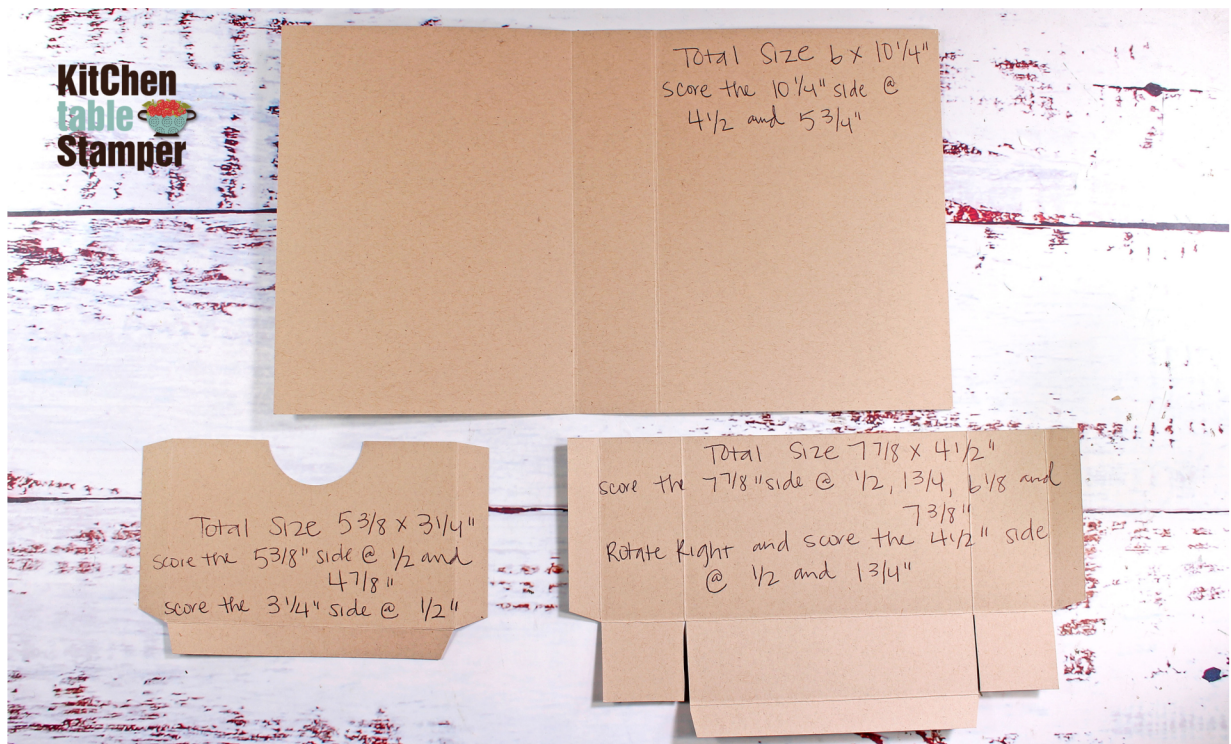 KitChen
table
Stamper
Total Size 6 x 10 1/4"
score the 10 1/4" side @
4 1/2 and 5 3/4"
Total Size 5 3/8 x 3 1/4"
score the 5 3/8" side @ 1/2 and
4 7/8"
score the 3 1/4" side @ 1/2"
Total Size 7 7/8 x 4 1/2"
score the 7 7/8" side @ 1/2, 1 3/4, 6 1/8 and
7 3/8"
Rotate Right and score the 4 1/2" side
@ 1/2 and 1 3/4"